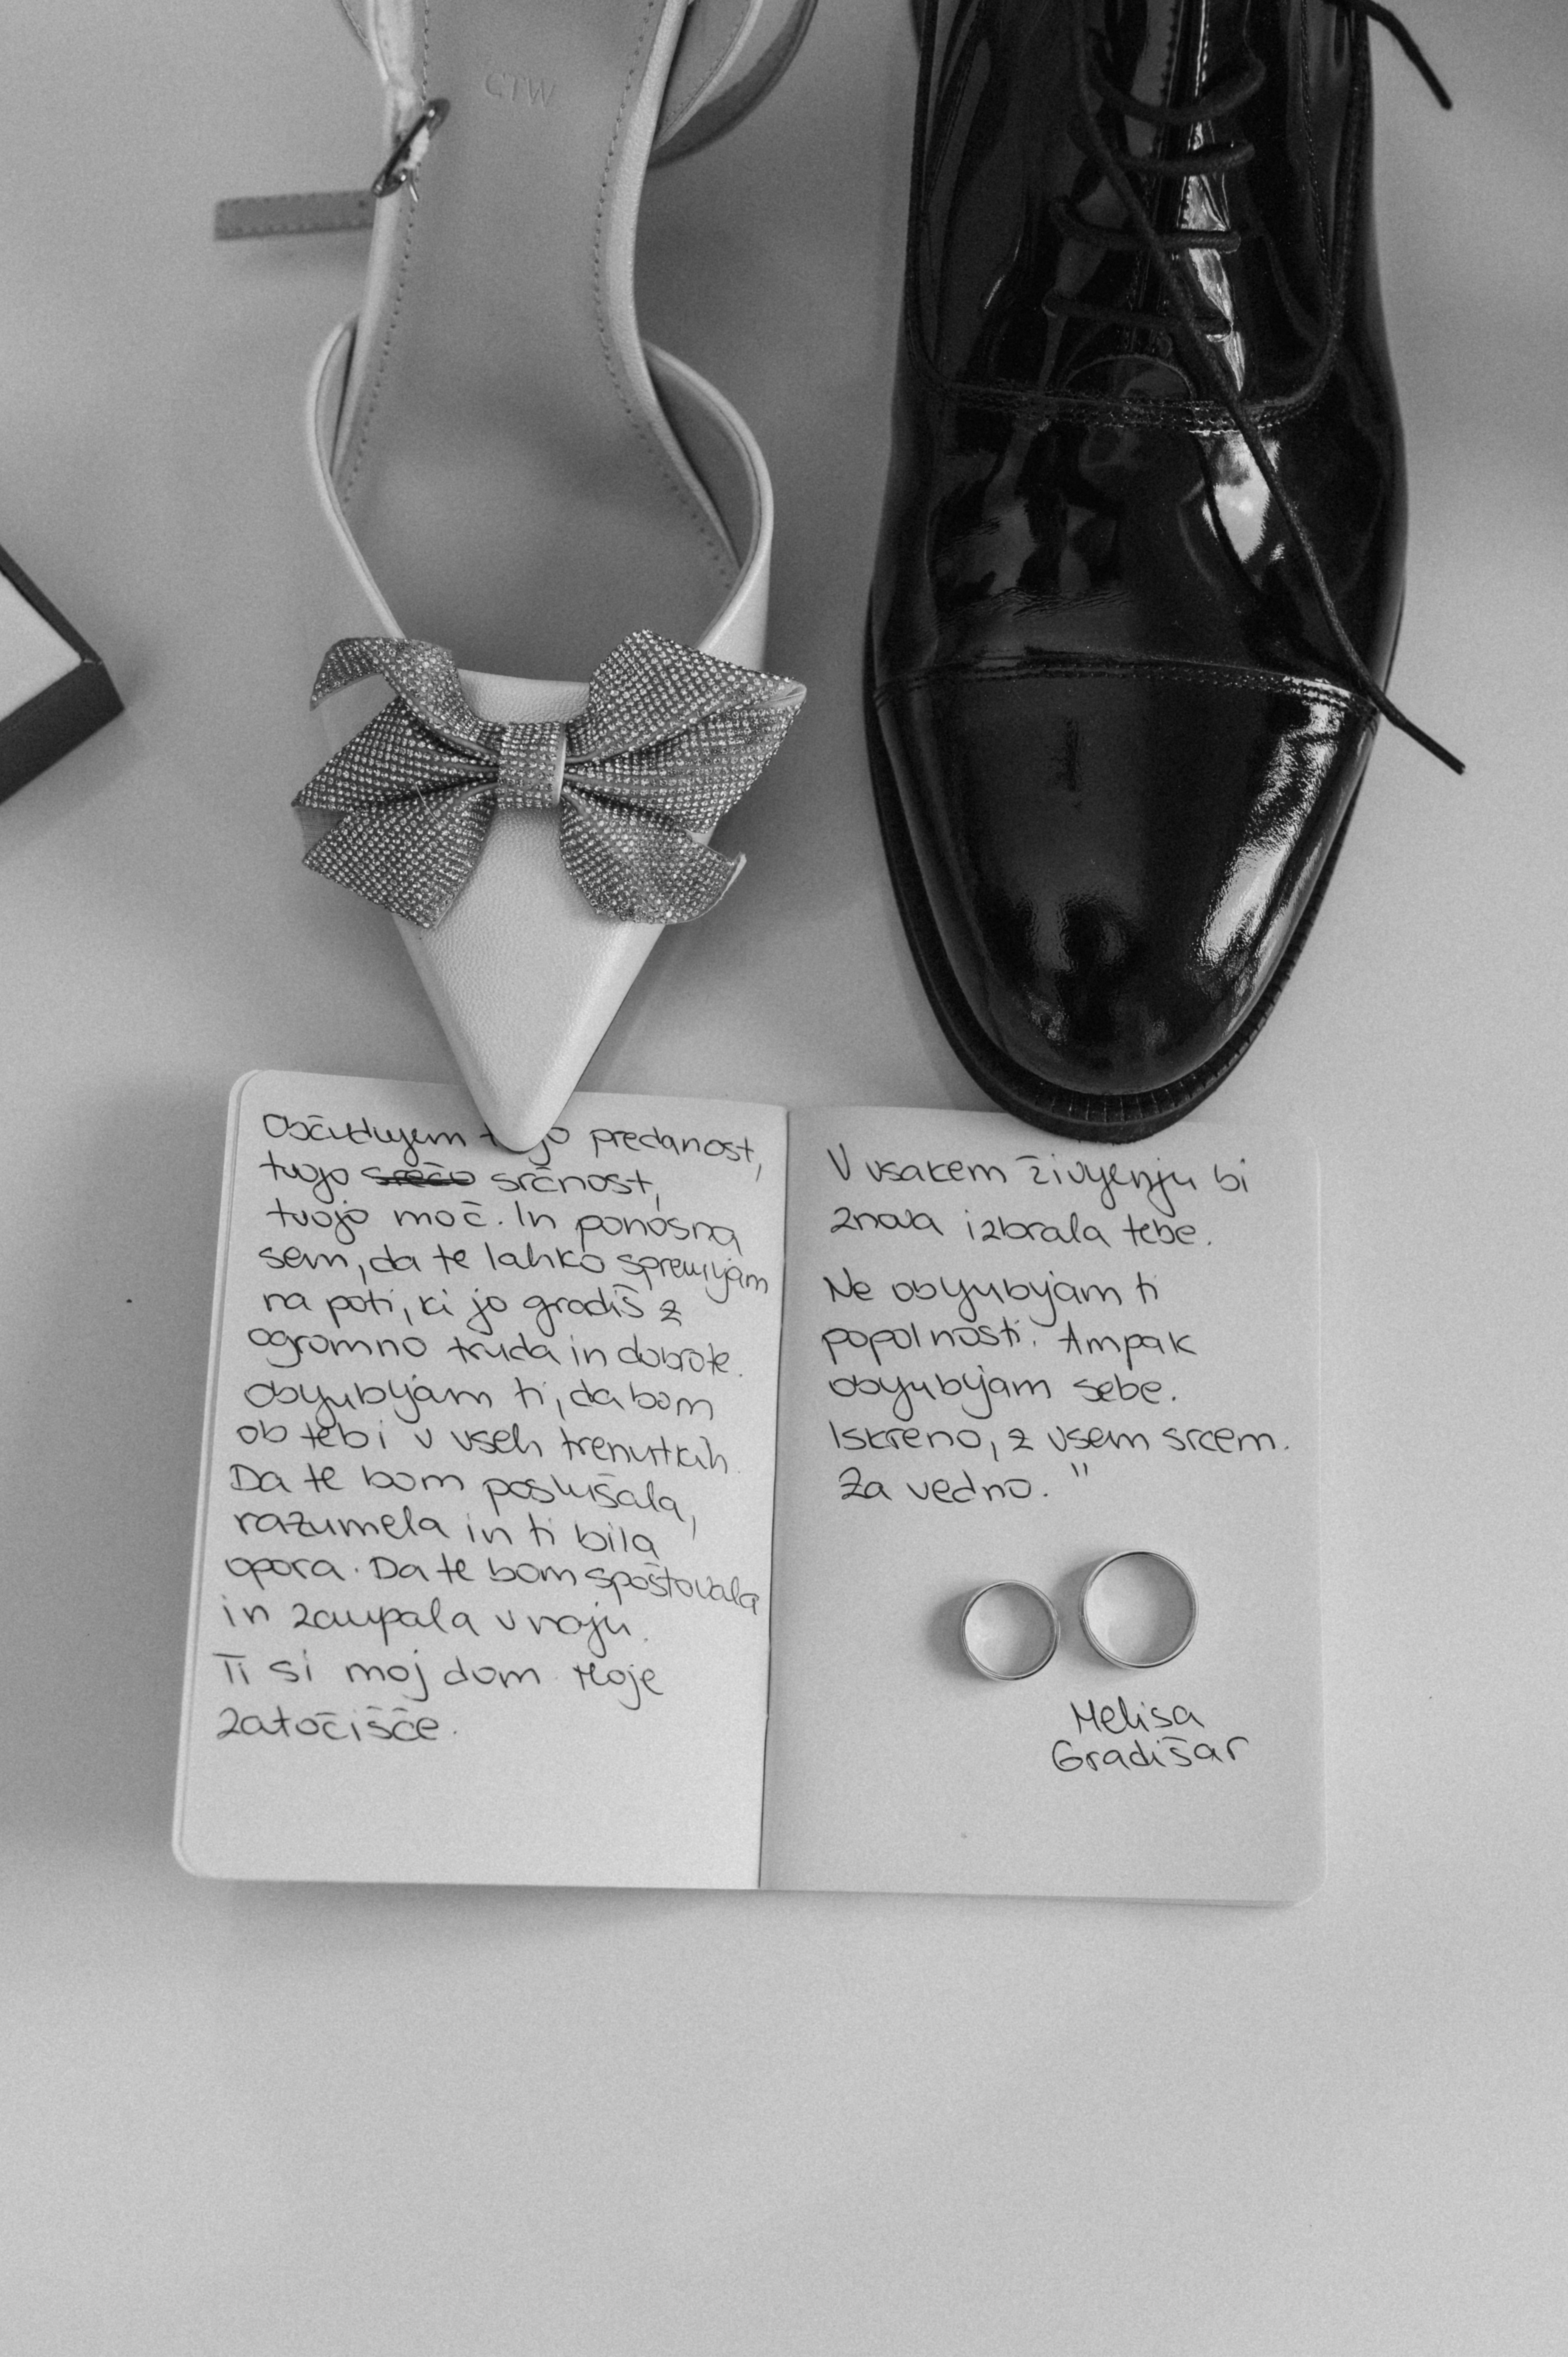 CTW
Občudujem tvojo predanost,
tvojo srečo srčnost,
tvojo moč. In ponosna
sem, da te lahko spremljam
na poti, ki jo gradiš z
ogromno truda in dobrote.
Obljubljam ti, da bom
ob tebi v vseh trenutkih.
Da te bom poslušala,
razumela in ti bila
opora. Da te bom spoštovala
in zaupala v naju.
Ti si moj dom. Moje
zatočišče.
V vsakem življenju bi
znova izbrala tebe.
Ne obljubljam ti
popolnosti. Ampak
obljubljam sebe.
Iskreno, z vsem srcem.
Za vedno."
Melisa
Gradišar